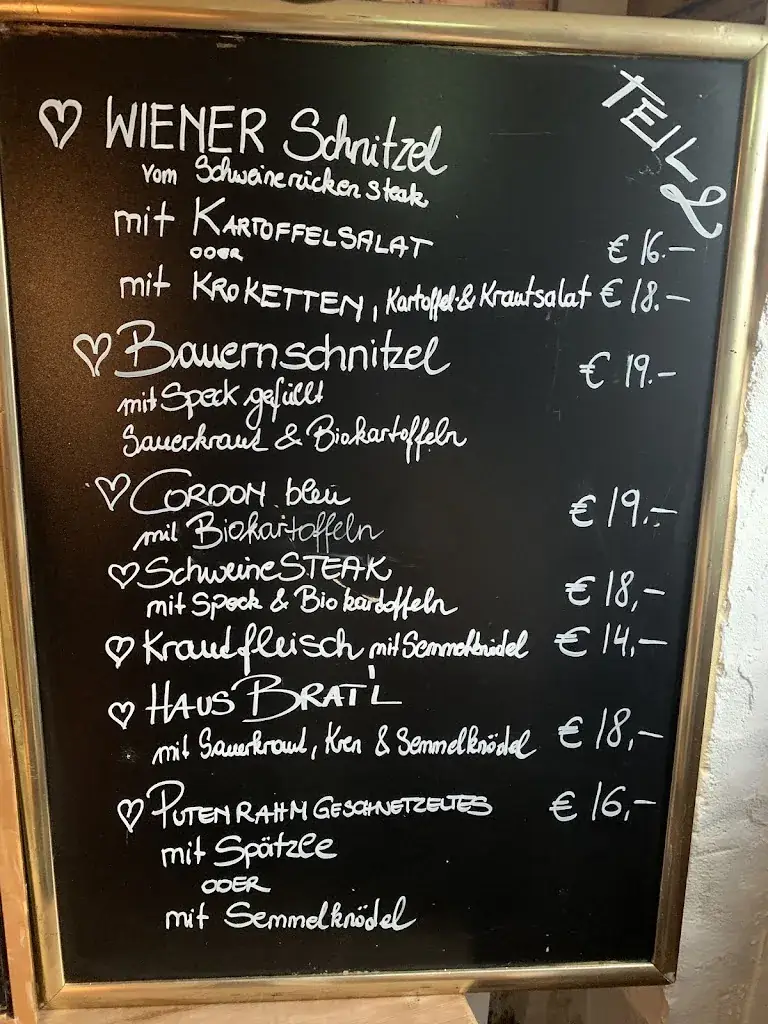 TEIL 2
♡ WIENER Schnitzel
vom Schweinerückensteak
mit KARTOFFELSALAT € 16.–
ODER
mit KROKETTEN, Kartoffel- & Krautsalat € 18.–
♡ Bauernschnitzel € 19.–
mit Speck gefüllt
Sauerkraut & Biokartoffeln
♡ CORDON bleu € 19.–
mit Biokartoffeln
♡ SchweineSTEAK € 18,–
mit Speck & Biokartoffeln
♡ Krautfleisch mit Semmelknödel € 14,–
♡ HAUS BRAT'L
mit Sauerkraut, Kren & Semmelknödel € 18,–
♡ PUTENRAHMGESCHNETZELTES € 16,–
mit Spätzle
ODER
mit Semmelknödel